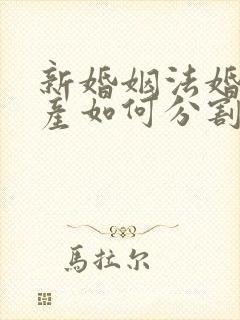 新婚姻法婚
产如何分割
馬拉尔